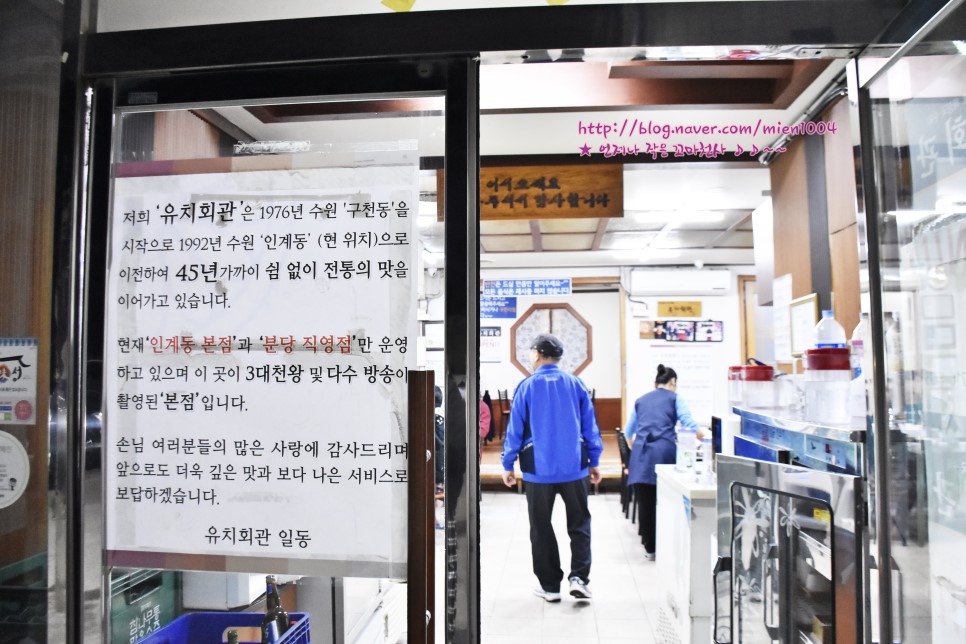 저희 '유치회관'은 1976년 수원 '구천동'을
시작으로 1992년 수원 '인계동' (현 위치)으로
이전하여 45년가까이 쉼 없이 전통의 맛을
이어가고 있습니다.
현재'인계동 본점'과 '분당 직영점'만 운영
하고 있으며 이 곳이 3대천왕 및 다수 방송이
촬영된'본점'입니다.
손님 여러분들의 많은 사랑에 감사드리며
앞으로도 더욱 깊은 맛과 보다 나은 서비스로
보답하겠습니다.
유치회관 일동
http://blog.naver.com/mien1004
★ 언제나 작음 꼬마천사 ♪ ♪ ~~
어서오세요
감사합니다
회관